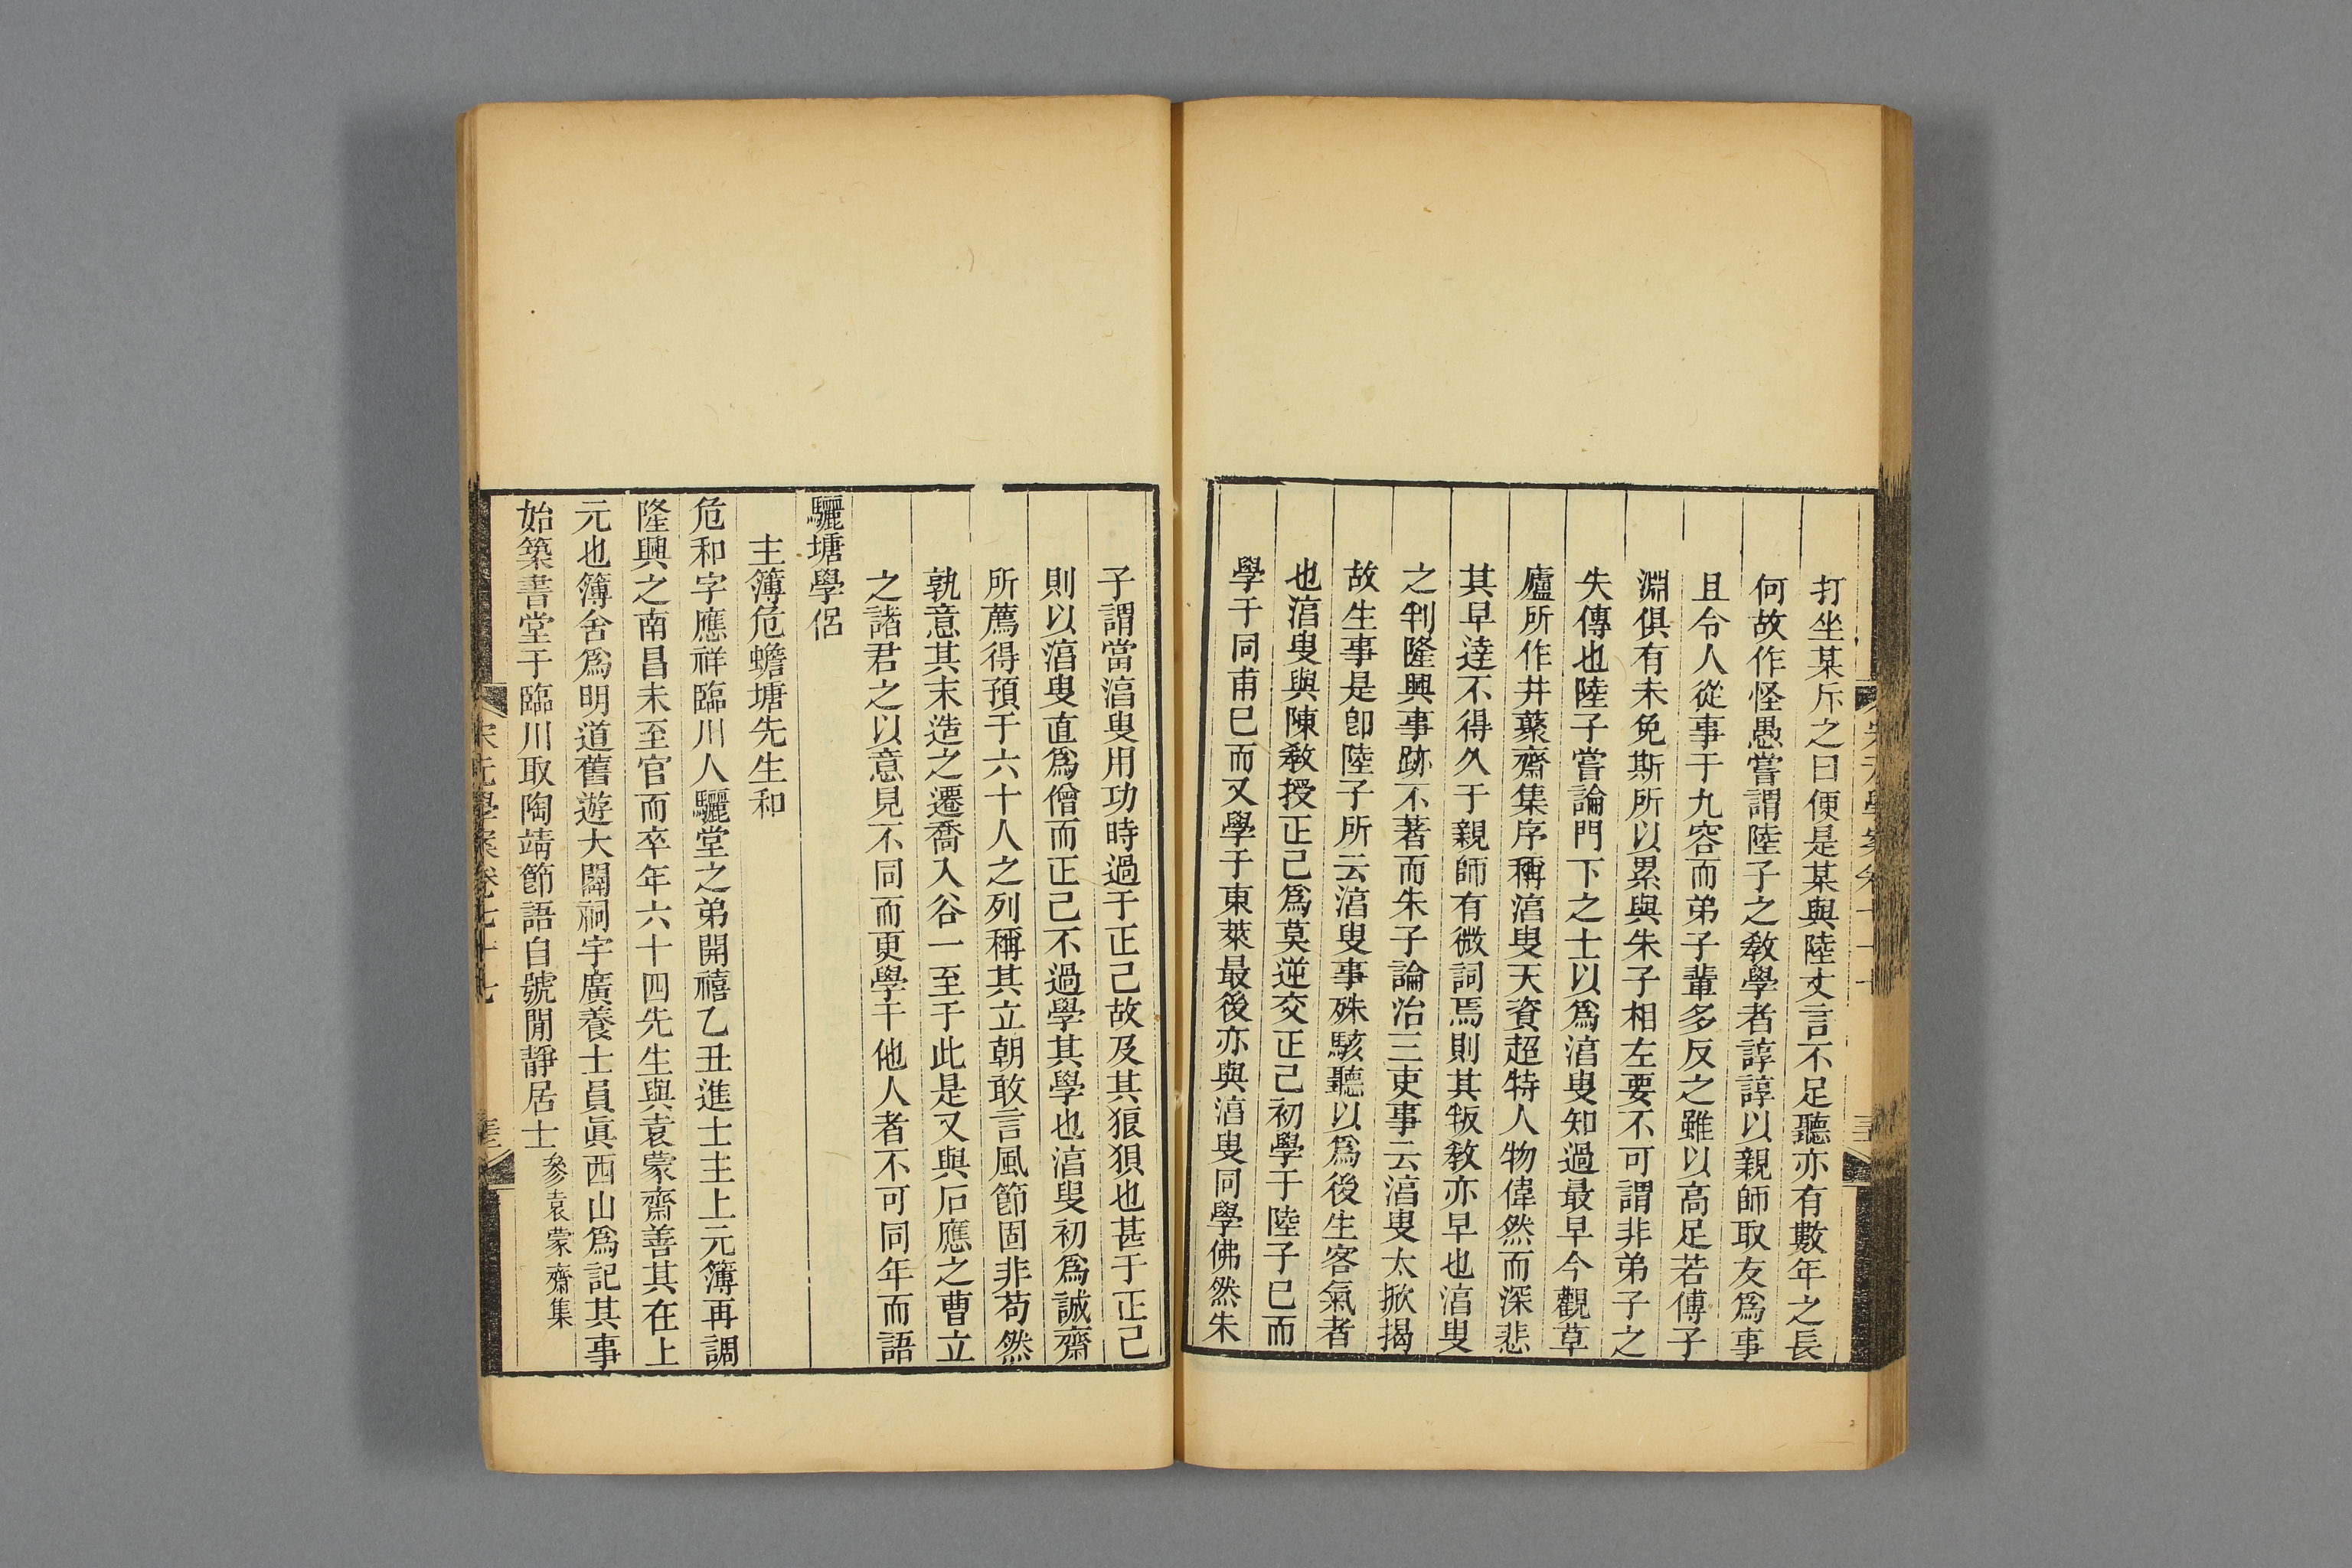 打坐某斥之曰便是某與陸丈言不足聽亦有數年之長
何故作怪愚嘗謂陸子之敎學者諄諄以親師取友爲事
且令人從事于九容而弟子輩多反之雖以高足若傅子
淵俱有未免斯所以累與朱子相左要不可謂非弟子之
失傳也陸子嘗論門下之士以爲㵎叟知過最早今觀草
廬所作井蘽齋集序稱㵎叟天資超特人物偉然而深悲
其早逹不得久于親師有微詞焉則其叛敎亦早也㵎叟
之判隆興事跡不著而朱子論治三吏事云㵎叟太掀揭
故生事是卽陸子所云㵎叟事殊駭聽以爲後生客氣者
也㵎叟與陳敎授正己爲莫逆交正己初學于陸子已而
學于同甫已而又學于東萊最後亦與㵎叟同學佛然朱
子謂當㵎叟用功時過于正己故及其狼狽也甚于正己
則以㵎叟直爲僧而正己不過學其學也㵎叟初爲誠齋
所薦得預于六十人之列稱其立朝敢言風節固非苟然
孰意其末造之遷喬入谷一至于此是又與石應之曹立
之諸君之以意見不同而更學于他人者不可同年而語
驪塘學侶
主簿危蟾塘先生和
危和字應祥臨川人驪堂之弟開禧乙丑進士主上元簿再調
隆興之南昌未至官而卒年六十四先生與袁蒙齋善其在上
元也簿舍爲明道舊遊大闢祠宇廣養士員眞西山爲記其事
始築書堂于臨川取陶靖節語自號閒靜居士參袁蒙齋集
宋元學案卷七十七